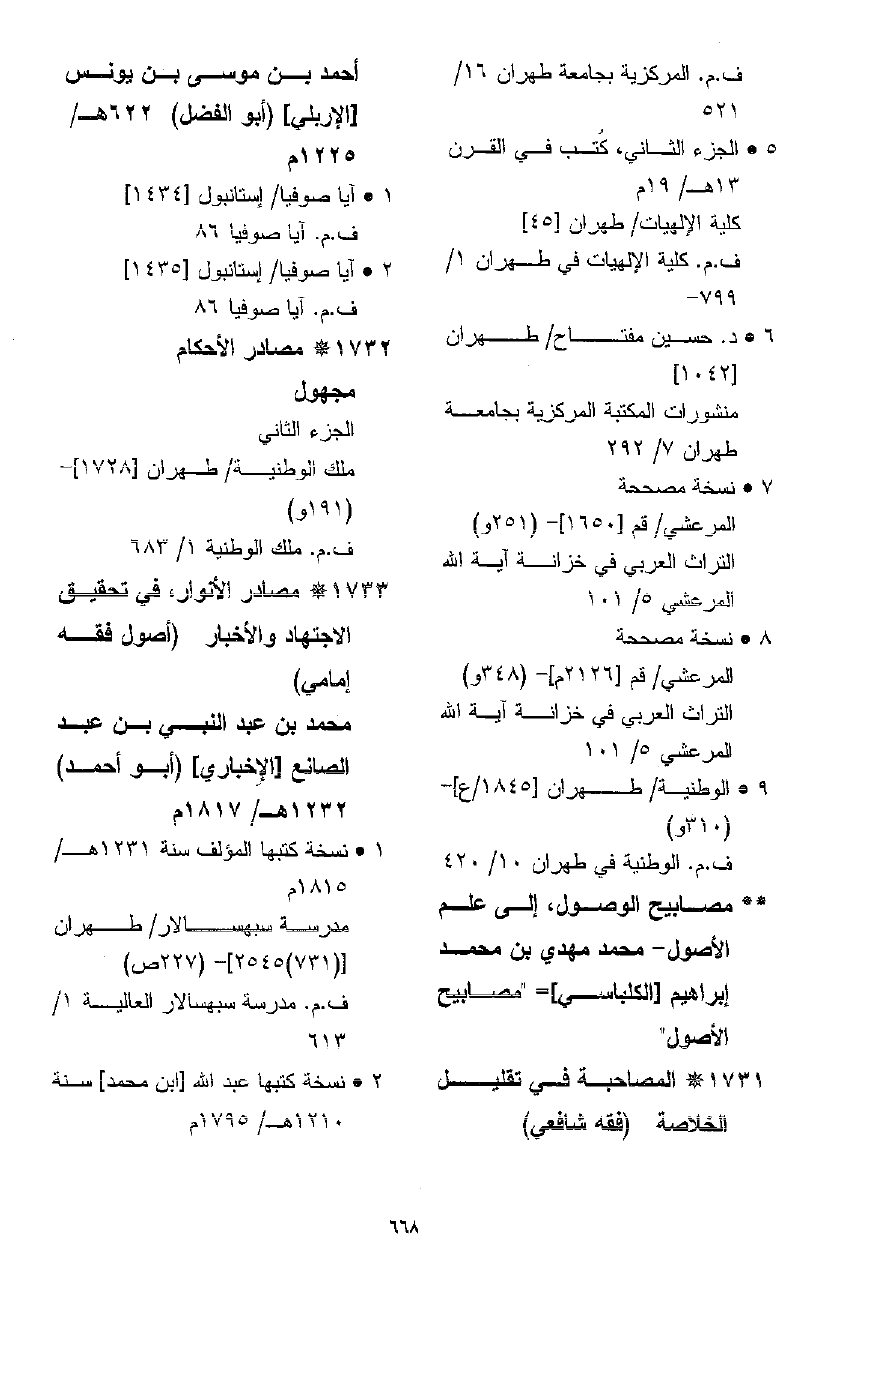 ف.م. المركزية بجامعة طهران ١٦/
٥٢١
٥ • الجزء الثاني، كُتب في القرن
١٣هـ/ ١٩م
كلية الإلهيات/ طهران [٤٥]
ف.م. كلية الإلهيات في طهران ١/
٧٩٩-
٦ • د. حسين مفتاح/ طهران
[١٠٤٢]
منشورات المكتبة المركزية بجامعة
طهران ٧/ ٢٩٢
٧ • نسخة مصححة
المرعشي/ قم [١٦٥٠]- (٢٥١و)
التراث العربي في خزانة آية الله
المرعشي ٥/ ١٠١
٨ • نسخة مصححة
المرعشي/ قم [٢١٢٦م]- (٣٤٨و)
التراث العربي في خزانة آية الله
المرعشي ٥/ ١٠١
٩ • الوطنية/ طهران [١٨٤٥/ع]-
(٣١٠و)
ف.م. الوطنية في طهران ١٠/ ٤٢٠
** مصابيح الوصول، إلى علم
الأصول- محمد مهدي بن محمد
إبراهيم [الكلباسي]= "مصابيح
الأصول"
١٧٣١* المصاحبة في تقليل
الخلاصة (فقه شافعي)
أحمد بن موسى بن يونس
[الإربلي] (أبو الفضل) ٦٢٢هـ/
١٢٢٥م
١ • آيا صوفيا/ إستانبول [١٤٣٤]
ف.م. آيا صوفيا ٨٦
٢ • آيا صوفيا/ إستانبول [١٤٣٥]
ف.م. آيا صوفيا ٨٦
١٧٣٢* مصادر الأحكام
مجهول
الجزء الثاني
ملك الوطنية/ طهران [١٧٢٨]-
(١٩١و)
ف.م. ملك الوطنية ١/ ٦٨٣
١٧٣٣* مصادر الأنوار، في تحقيق
الاجتهاد والأخبار (أصول فقه
إمامي)
محمد بن عبد النبي بن عبد
الصانع [الإخباري] (أبو أحمد)
١٢٣٢هـ/ ١٨١٧م
١ • نسخة كتبها المؤلف سنة ١٢٣١هـ/
١٨١٥م
مدرسة سبهسالار/ طهران
[(٧٣١)٢٥٤٥]- (٢٢٧ص)
ف.م. مدرسة سبهسالار العالية ١/
٦١٣
٢ • نسخة كتبها عبد الله [ابن محمد] سنة
١٢١٠هـ/ ١٧٩٥م
٦٦٨